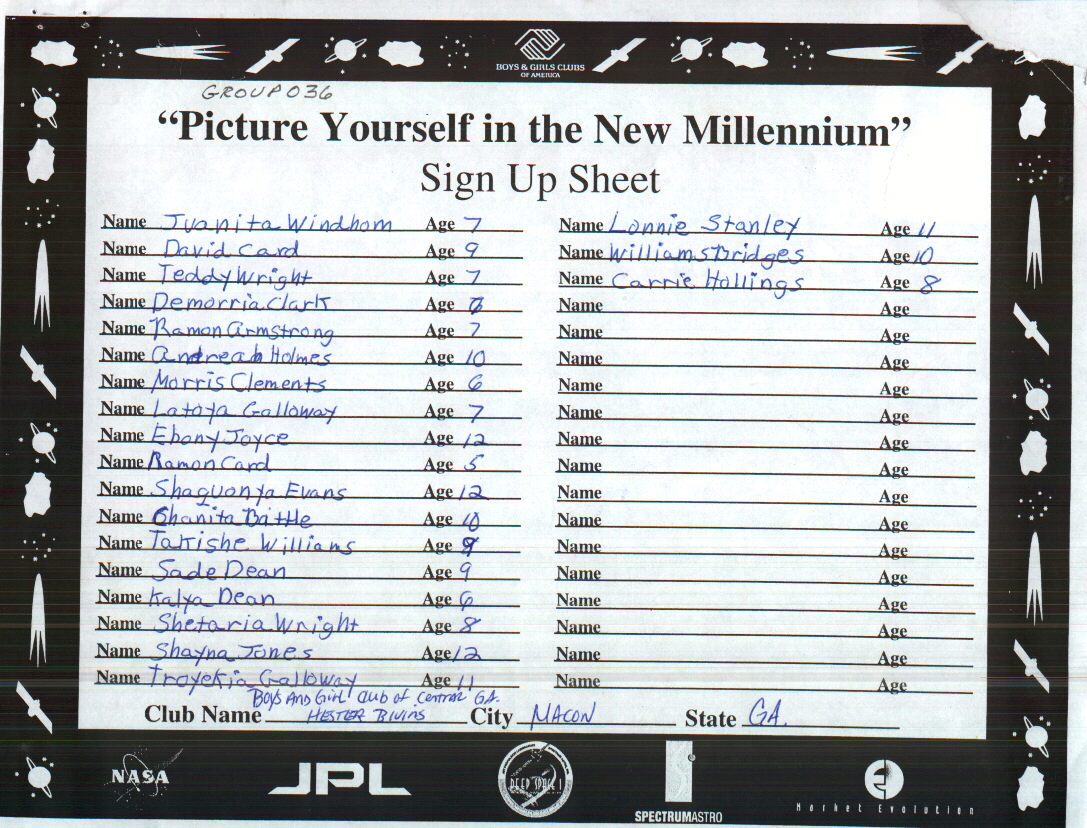 BOYS & GIRLS CLUBS
OF AMERICA
GROUP 036
"Picture Yourself in the New Millennium"
Sign Up Sheet
Name Juanita Windhom Age 7
Name David Card Age 9
Name Teddy Wright Age 7
Name Demorria Clark Age
Name Ramon Armstrong Age 7
Name Andreah Holmes Age 10
Name Morris Clements Age 6
Name Latoya Galloway Age 7
Name Ebony Joyce Age 12
Name Ramon Card Age 5
Name Shaquonya Evans Age 12
Name Chanita Battle Age 10
Name Takishe Williams Age 9
Name Sade Dean Age 9
Name Kalya Dean Age 6
Name Shetaria Wright Age 8
Name Shayna Jones Age 12
Name Troyekia Galloway Age 11
Name Lonnie Stanley Age 11
Name Williams Bridges Age 10
Name Carrie Hollings Age 8
Name Age
Name Age
Name Age
Name Age
Name Age
Name Age
Name Age
Name Age
Name Age
Name Age
Name Age
Name Age
Name Age
Name Age
Name Age
Boys And Girl Club of Central GA.
Club Name HESTER BIVINS City MACON State GA.
NASA
JPL
DEEP SPACE 1
SPECTRUMASTRO
Market Evolution